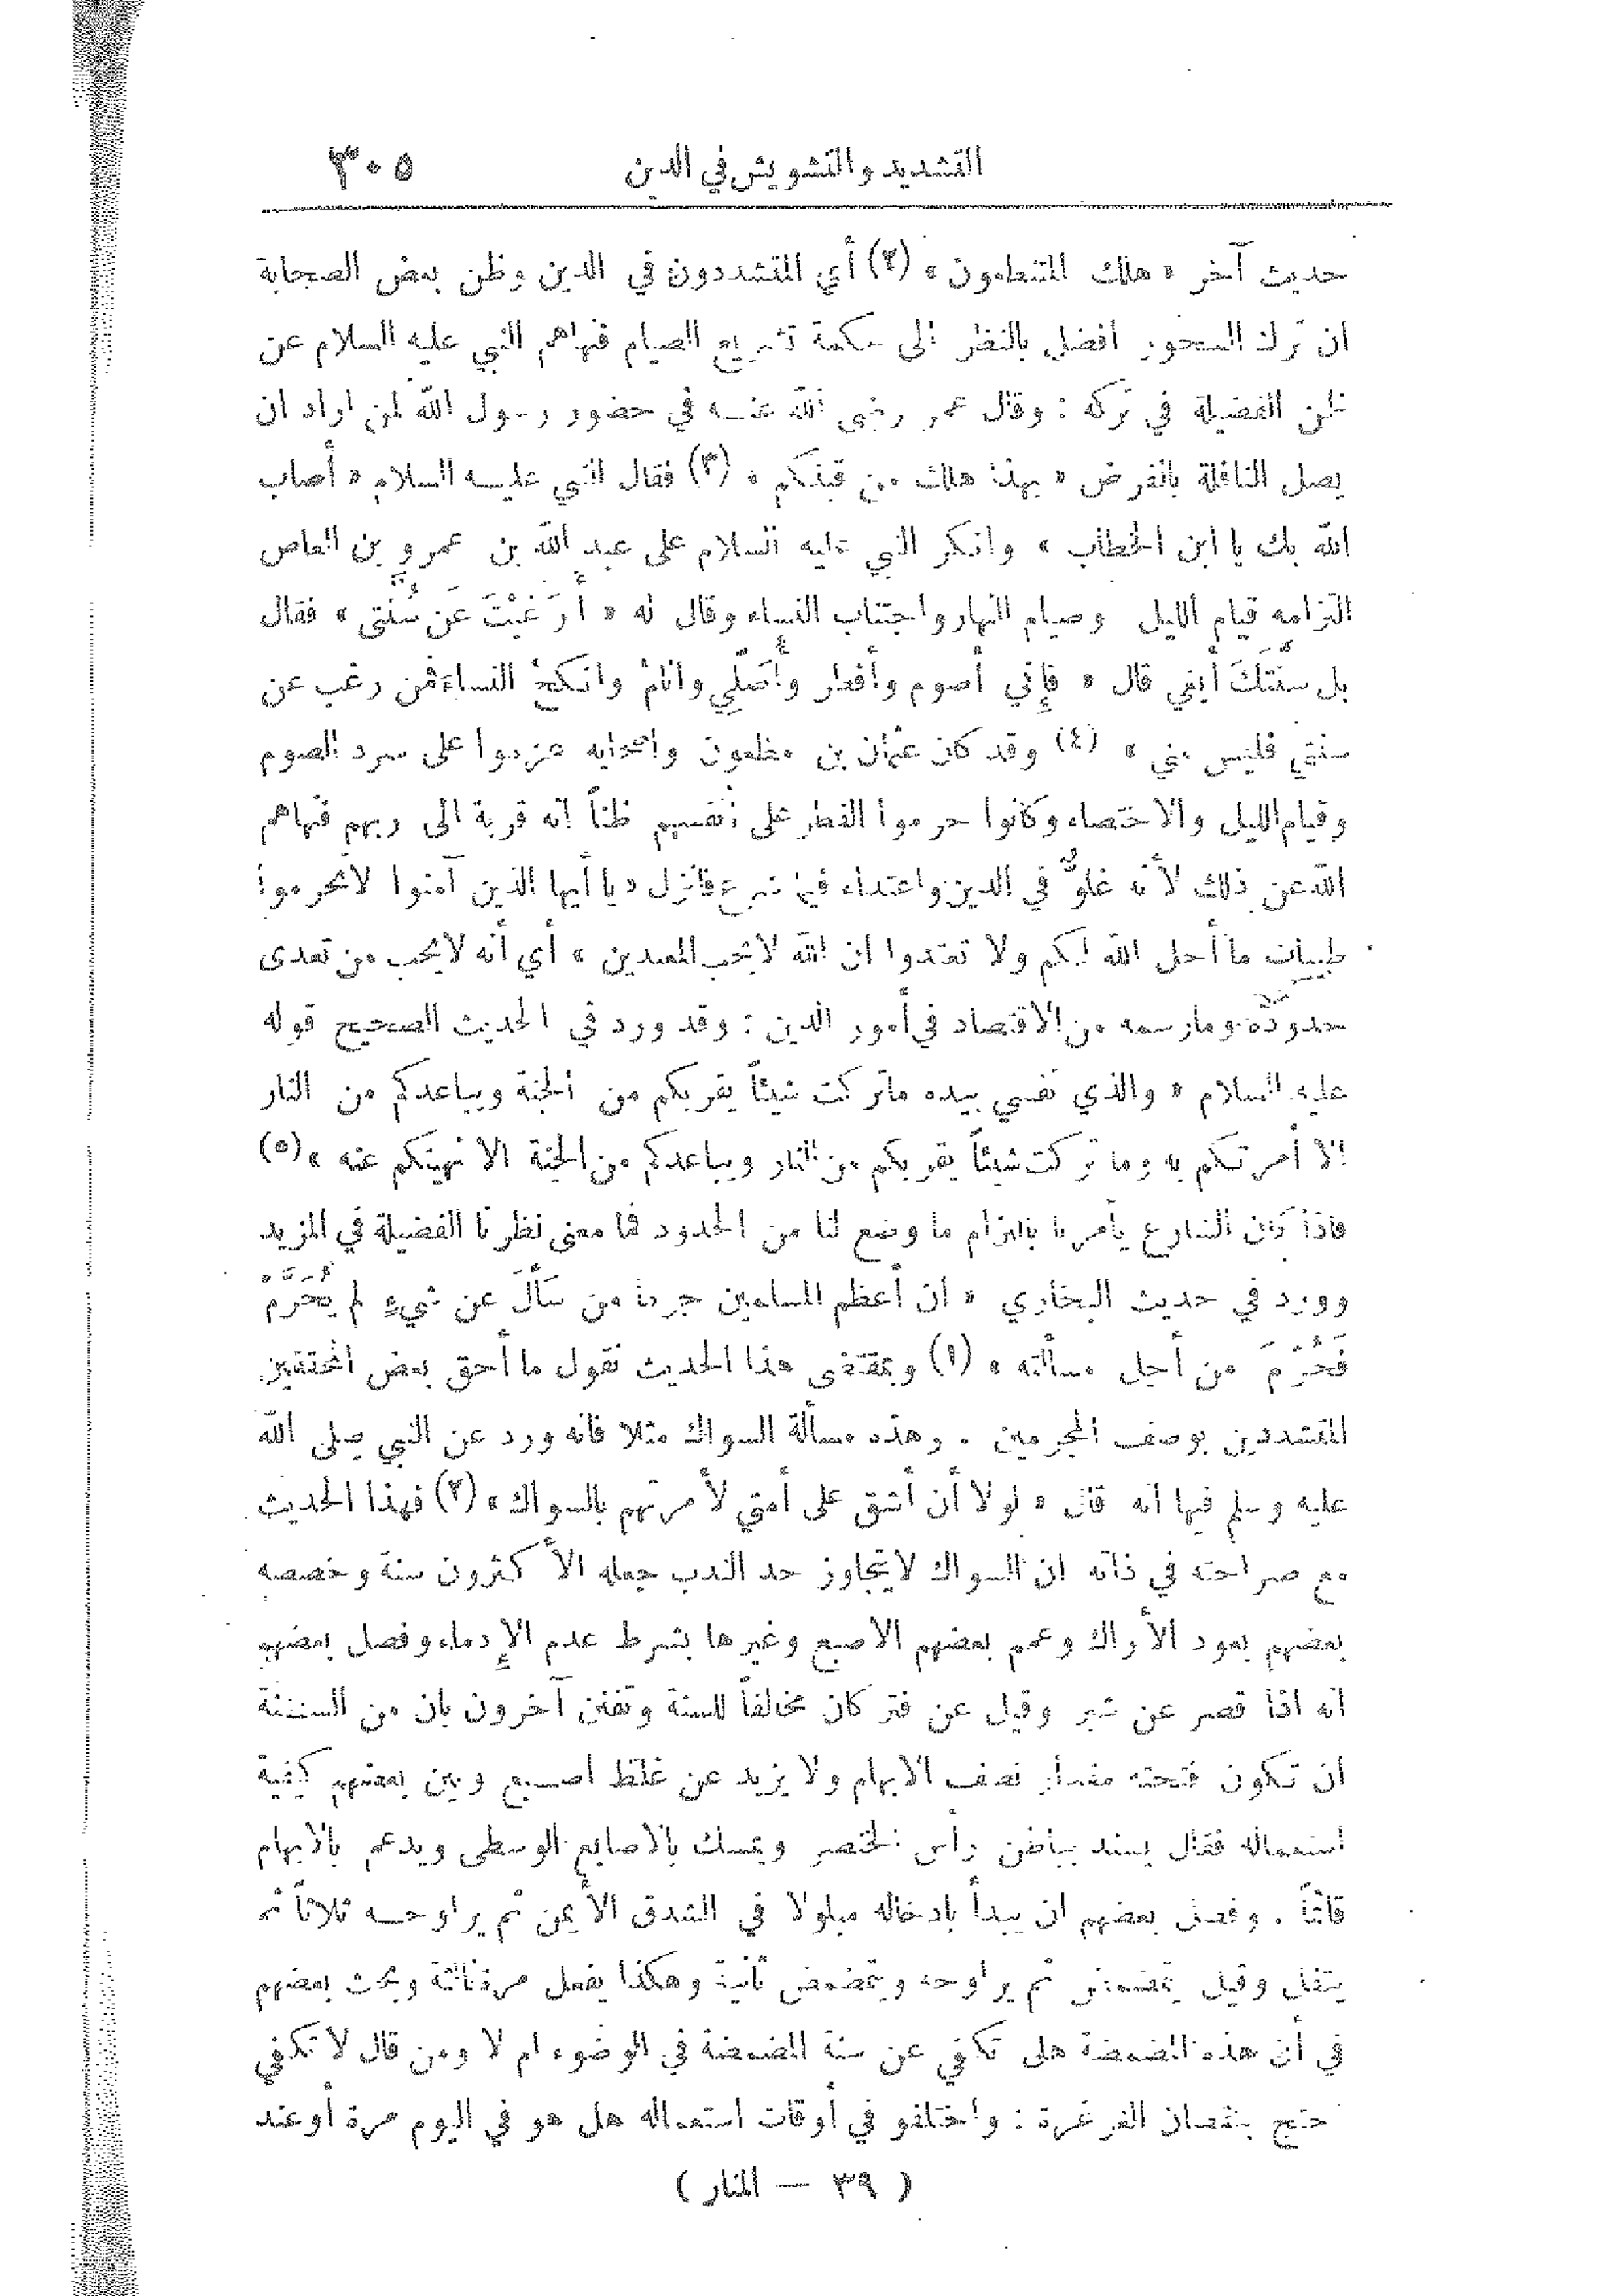 التشديد والتشويش في الدين ٣٠٥
حديث آخر « هلك المتنطعون » (٢) أي المتشددون في الدين وظن بعض الصحابة
ان ترك السحور افضل بالنظر الى حكمة تشريع الصيام فنهاهم النبي عليه السلام عن
ظن الفضيلة في تركه : وقال عمر رضي الله عنه في حضور رسول الله لمن اراد ان
يصل النافلة بالفرض « بهذا هلك من قبلكم » (٣) فقال النبي عليه السلام « أصاب
الله بك يا ابن الخطاب » وانكر النبي عليه السلام على عبد الله بن عمرو بن العاص
التزامه قيام الليل وصيام النهار واجتناب النساء وقال له « أَرَغِبْتَ عَن سُنَّتي » فقال
بل سنتَكَ أبغي قال « فإِني أصوم وأفطر وأُصَلِّي وأنامُ وانكحُ النساءَ فمن رغب عن
سنتي فليس مني » (٤) وقد كان عثمان بن مظعون واصحابه عزموا على سرد الصوم
وقيام الليل والاختصاء وكانوا حرموا الفطر على أنفسهم ظناً انه قربة الى ربهم فنهاهم
الله عن ذلك لأنه غلوٌّ في الدين واعتداء فيما شرع فانزل « يا أيها الذين آمنوا لا تحرموا
طيبات ما أحل الله لكم ولا تعتدوا ان الله لا يحب المعتدين » أي أنه لا يحب من تعدى
حدودَه وما رسمه من الاقتصاد في أمور الدين : وقد ورد في الحديث الصحيح قوله
عليه السلام « والذي نفسي بيده ما تركت شيئاً يقربكم من الجنة ويباعدكم من النار
الا أمرتكم به وما تركت شيئاً يقربكم من النار ويباعدكم من الجنة الا نهيتكم عنه » (٥)
فاذا كان الشارع يأمرنا بالتزام ما وضع لنا من الحدود فما معنى نظرنا الفضيلة في المزيد
وورد في حديث البخاري « ان أعظم المسلمين جرماً من سَأَلَ عن شيءٍ لم يُحَرَّمْ
فَحُرِّمَ من أجل مسألته » (١) وبمقتضى هذا الحديث نقول ما أحق بعض المحققين
المتشددين بوصف المجرمين . وهذه مسألة السواك مثلا فانه ورد عن النبي صلى الله
عليه وسلم فيها انه قال « لولا أن أشق على أمتي لأمرتهم بالسواك » (٢) فهذا الحديث
مع صراحته في ذاته ان السواك لا يتجاوز حد الندب جعله الأكثرون سنة وخصصه
بعضهم بعود الأراك وعمم بعضهم الاصبع وغيرها بشرط عدم الإِدماء وفصل بعضهم
انه اذا قصر عن شبر وقيل عن فتر كان مخالفاً للسنة وتفنن آخرون بان من السنة
ان تكون فتحته مقدار نصف الابهام ولا يزيد عن غلظ اصبع وبين بعضهم كيفية
استعماله فقال يسند ببطن رأس الخنصر ويمسك بالاصابع الوسطى ويدعم بالابهام
قائماً . وفصل بعضهم ان يبدأ بادخاله مبلولا في الشدق الأيمن ثم يراوحه ثلاثاً ثم
يتفل وقيل يتمضمض ثم يراوحه ويتمضمض ثانية وهكذا يفعل مرة ثالثة وبحث بعضهم
في أن هذه المضمضة هل تكفي عن سنة المضمضة في الوضوء ام لا ومن قال لا تكفي
حتج بنقصان الغرغرة : واختلفو في أوقات استعماله هل هو في اليوم مرة أو عند
( ٣٩ — المنار )